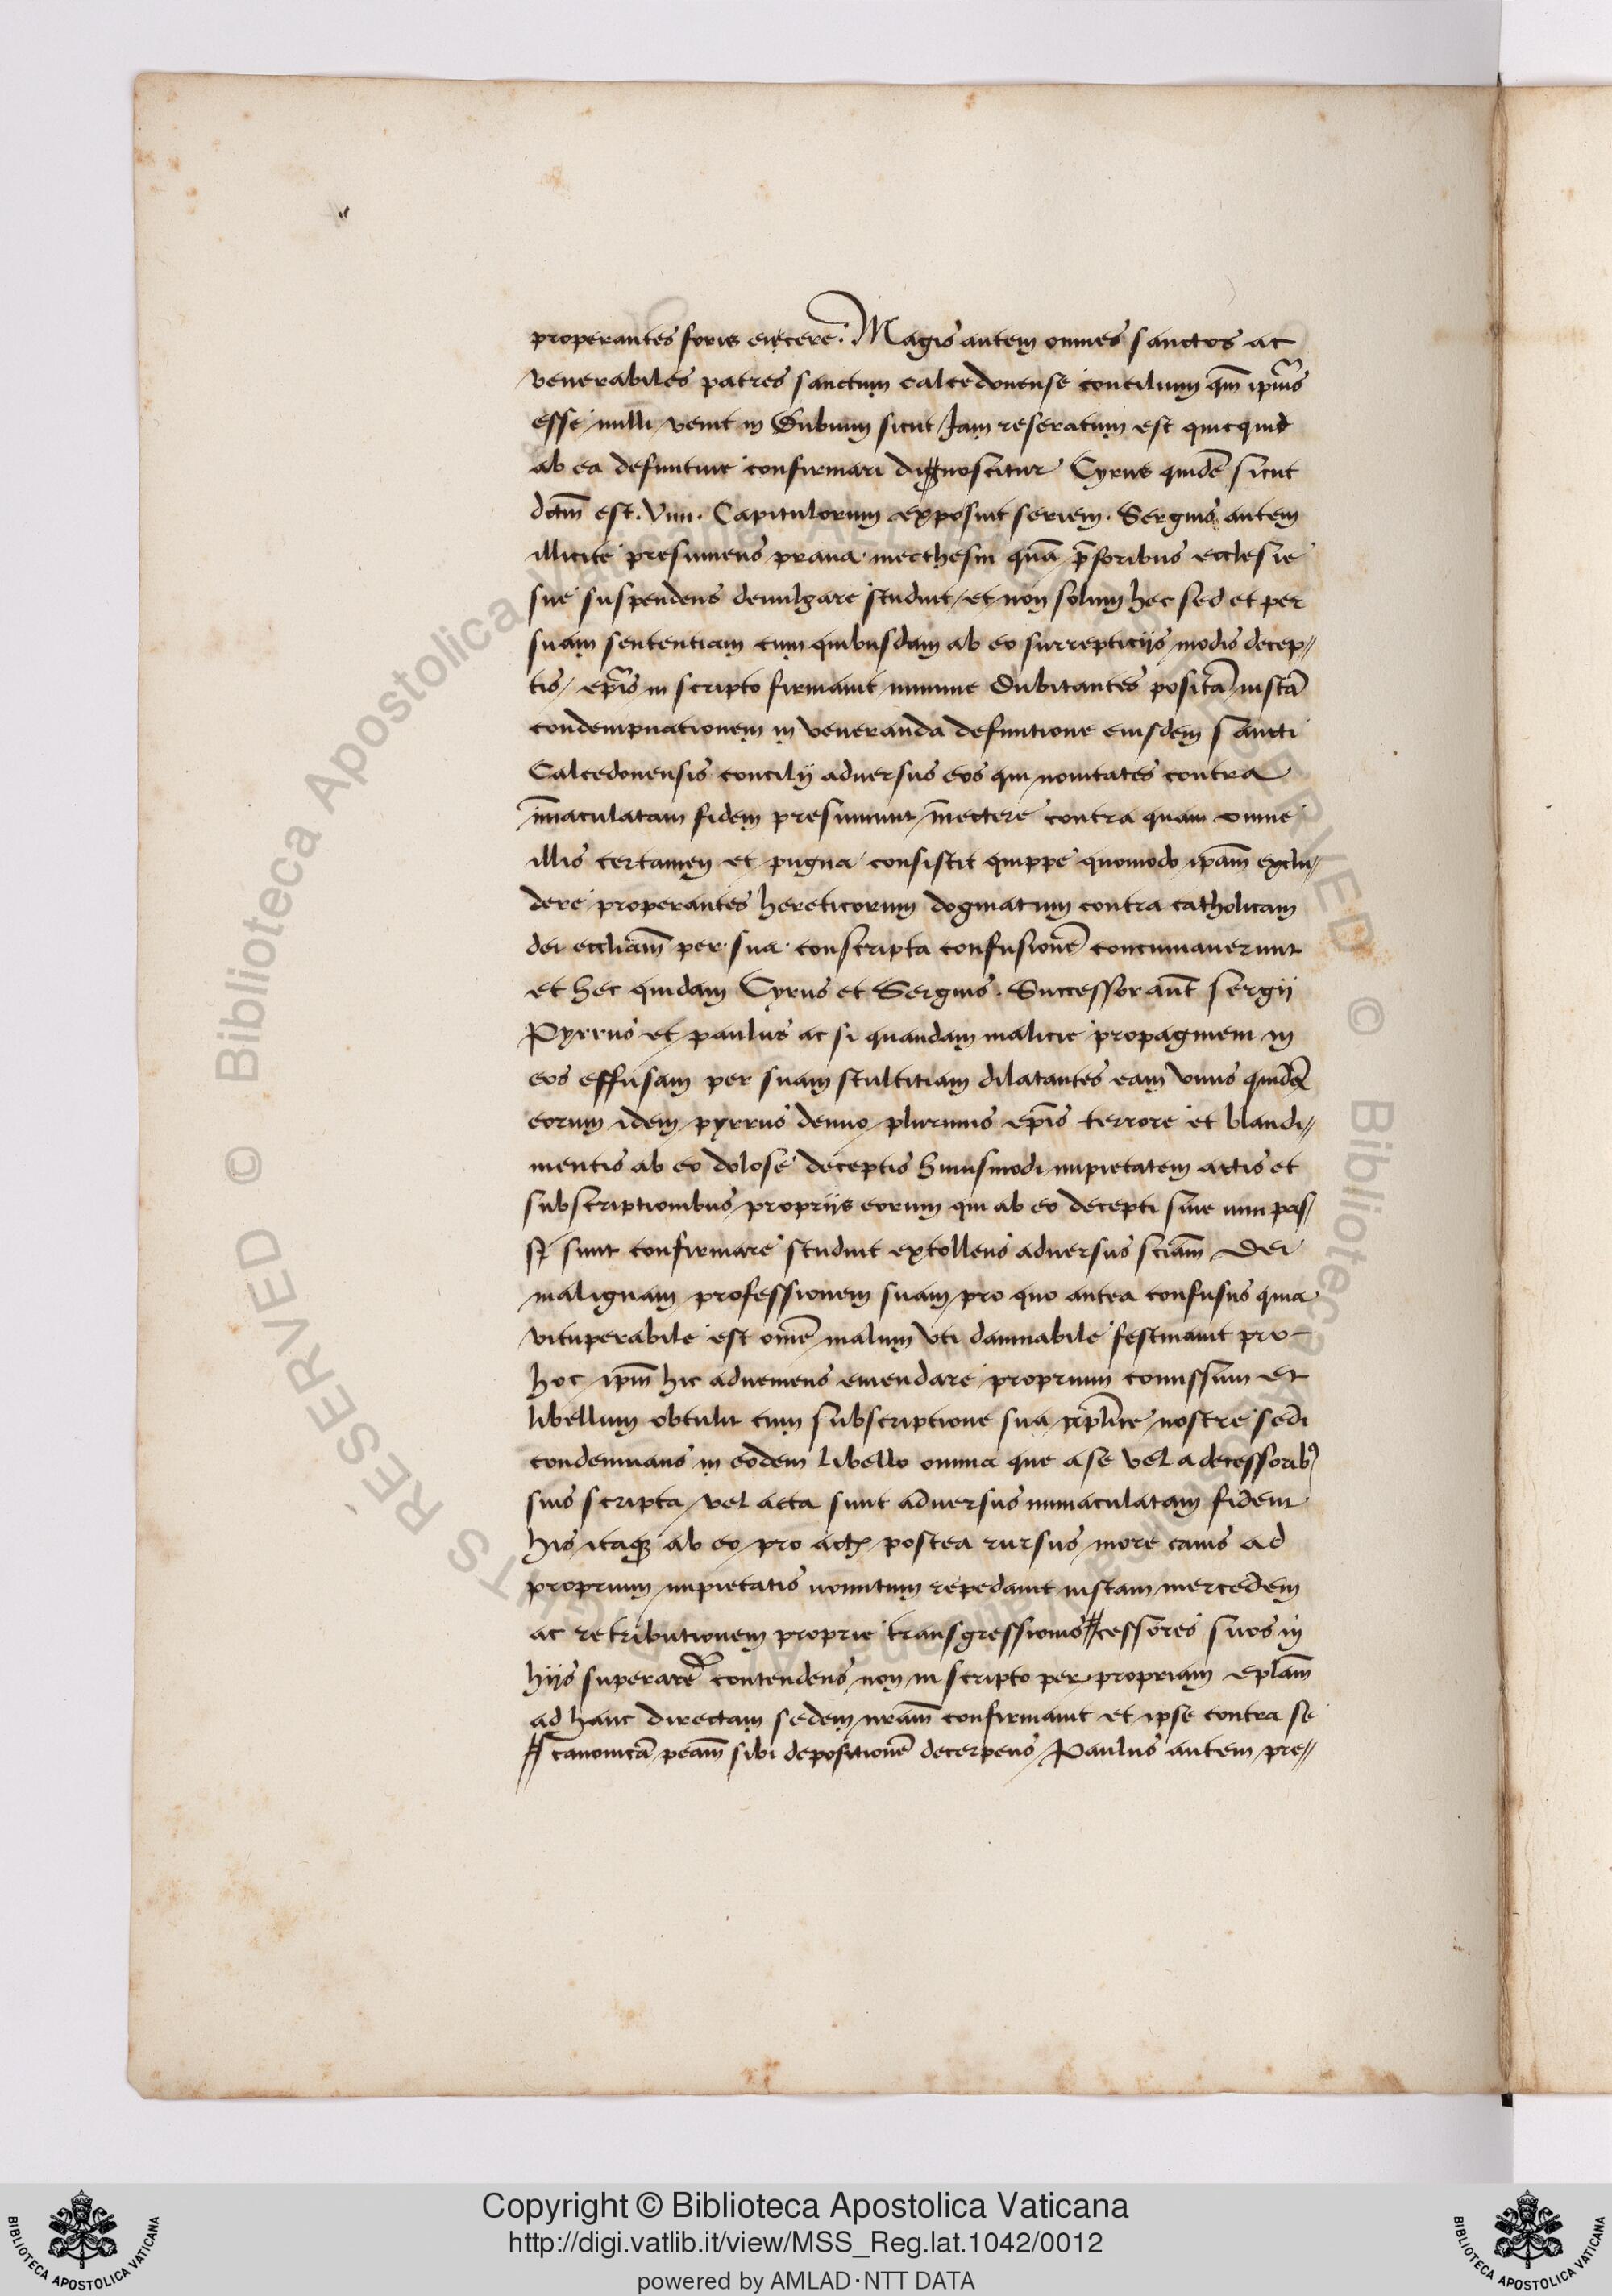 properantes foris eiicere. Magis autem omnes sanctos ac
venerabiles patres sanctum calcedonense concilium qm̄ ip̄ius
esse nulli venit in dubium sicut Jam reseratum est quicquid
ab ea defuntiue confirmari dignoscitur Cyrus quidē sicut
dctm̄ est. viiii. Capitulorum exposuit seriem. Sergius autem
illicite presumens praua. mecthesin quā p̄ foribus ecclesie
sue suspendens deuulgare studuit / et non solum hec sed et per
suam sententiam cum quibusdam ab eo surrepticijs modis decep//
tis / ep̄is in scripto firmauit minime dubitantes positā iustā
condempnationem in veneranda defuntione eiusdem sancti
Calcedonensis concilij aduersus eos qui nouitates contra
īmaculatam fidem presumunt īnectere contra quam omne
illis certamen et pugna consistit quippe quomodo ip̄am exclu//
dere properantes hereticorum dogmatum contra catholicam
dei eccliam̄ per. sua. conscripta confusionē concumauerunt
et hec quidam Cyrus et Sergius. Successor aut̄ sergij
Pyrrus et paulus ac si quandam malicie propaginem in
eos effusam per suam stultitiam dilatantes eam vnus quidē
eorum idem pyrrus denuo plurimis ep̄is terrore et blandi//
mentis ab eo dolose deceptis huiusmodi impietatem actis et
subscriptionibus propriis eorum qui ab eo decepti siue uim pas/
si sunt confirmare studuit extollens aduersus sciam̄ Dei
malignam professionem suam pro quo antea confusus quia
vituperabile est omē malum vti damnabile festinauit pro
hoc ip̄m hic adueniens emendare proprium comissum et
libellum obtulit cum subscriptione sua nostre sedi
condemnans in eodem libello omnia que a se vel a decessorib9
suis scripta vel acta sunt aduersus immaculatam fidem
his itaq3 ab eo pro postea rursus more canis ad
proprium impietatis uomitum repedauit iustam mercedem
ac retributionem proprie transgressionis # cessores suos in
hijs superare contendens non in scripto per propriam eplam̄
ad hanc directam sedem nram̄ confirmauit et ipse contra se
# canonicā sibi depositionē decerpens / Paulus autem pre//
Copyright © Biblioteca Apostolica Vaticana
http://digi.vatlib.it/view/MSS_Reg.lat.1042/0012
powered by AMLAD·NTT DATA